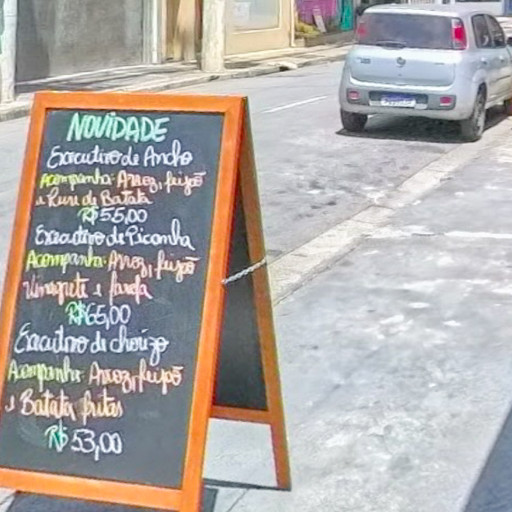 NOVIDADE
Executivo de Ancho
Acompanha: Arroz, feijão
e Pure de Batata
R$55,00
Executivo de Picanha
Acompanha: Arroz, feijão
Vinagrete e farofa
R$65,00
Executivo de chorizo
Acompanha: Arroz, feijão
e Batata fritas
R$ 53,00